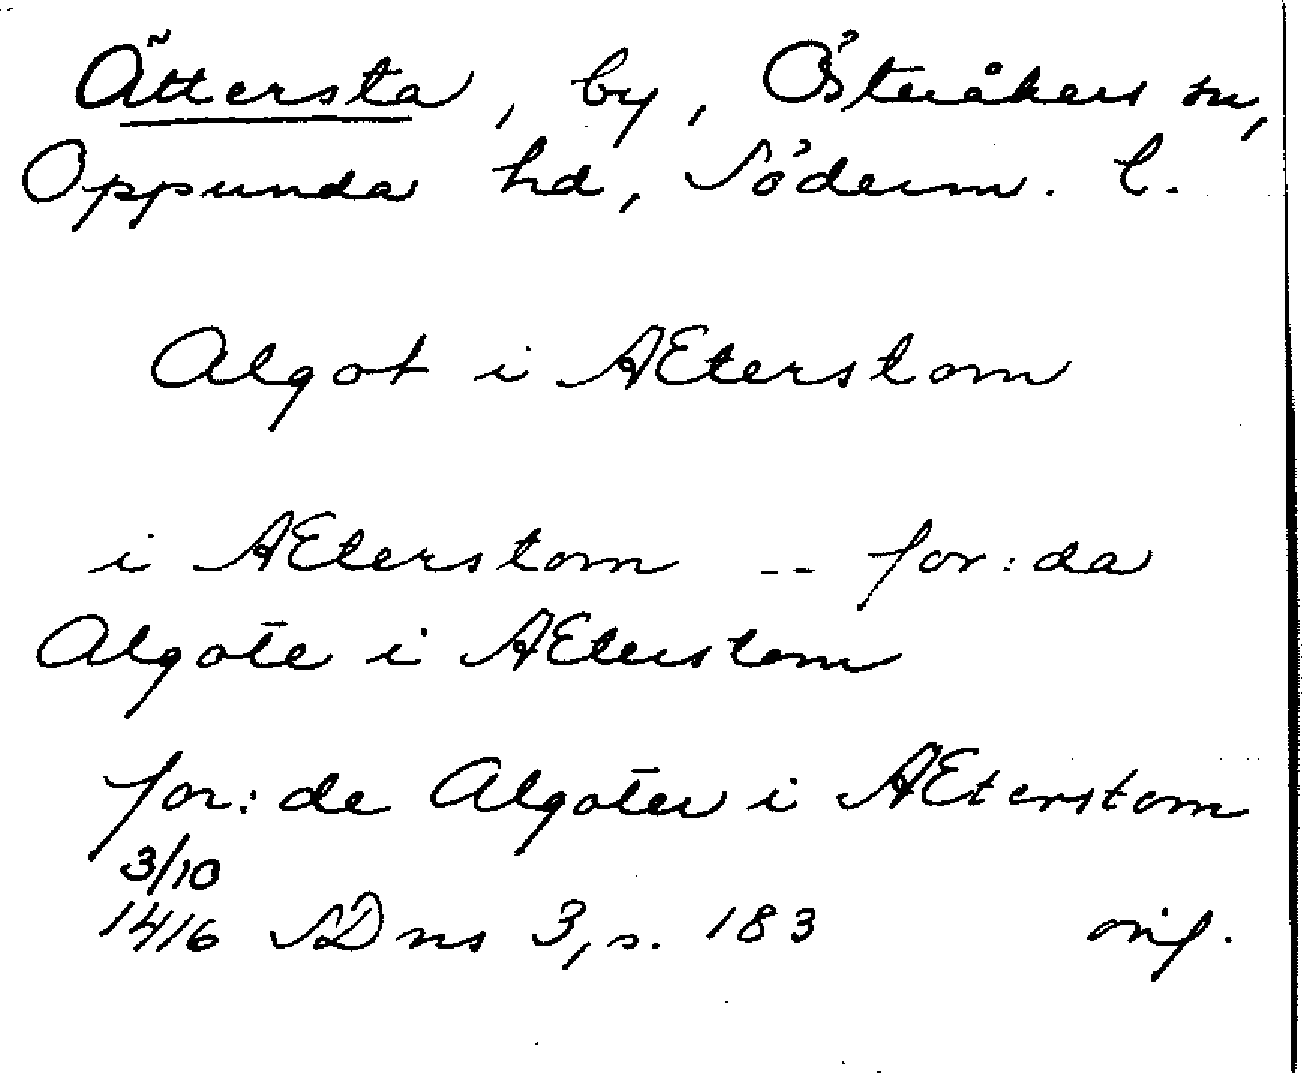 Ättersta, by, Österåkers sn,
Oppunda hd, Söderm. l.
Algot i Æterstom
i Æterstom -- for:da
Algote i Æterstom
for:de Algoter i Æterstom
3/10
1416 SDns 3, s. 183 orig.